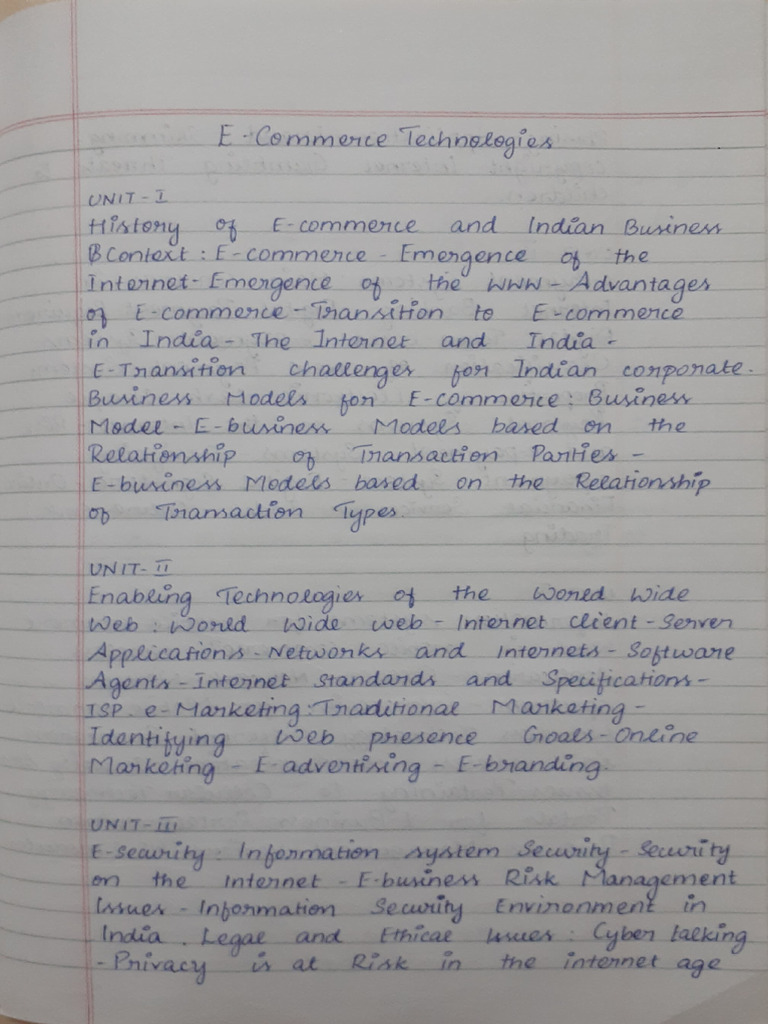 E-Commerce Technologies
UNIT-I
History of E-commerce and Indian Business
Context : E-commerce - Emergence of the
Internet- Emergence of the WWW - Advantages
of E-commerce - Transition to E-commerce
in India - The Internet and India -
E-Transition challenges for Indian corporate.
Business Models for E-commerce : Business
Model - E-business Models based on the
Relationship of Transaction Parties -
E-business Models based on the Relationship
of Transaction Types.
UNIT-II
Enabling Technologies of the World Wide
Web : World Wide Web - Internet Client - Server
Applications - Networks and Internets - Software
Agents - Internet Standards and Specifications -
ISP. e-Marketing : Traditional Marketing -
Identifying Web presence Goals - Online
Marketing - E-advertising - E-branding.
UNIT-III
E-security : Information system Security - Security
on the Internet - E-business Risk Management
Issues - Information Security Environment in
India. Legal and Ethical Issues : Cyber talking
- Privacy is at Risk in the internet age